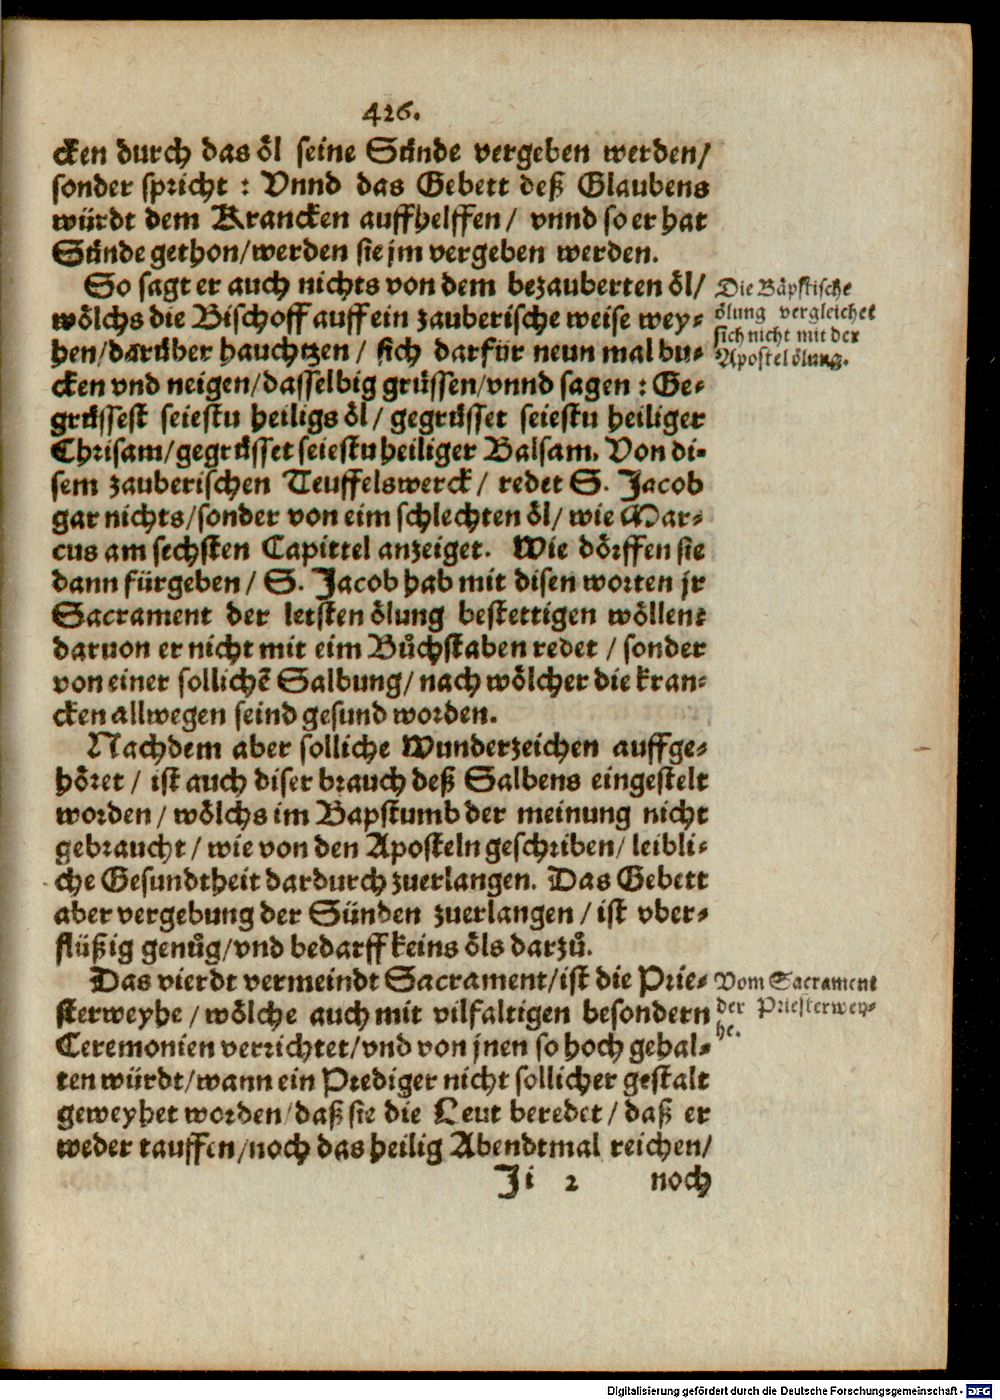 426.
cken durch das öl seine Sünde vergeben werden/
sonder spricht: Vnnd das Gebett deß Glaubens
würdt dem Krancken auffhelffen/ vnnd so er hat
Sünde gethon/werden sie jm vergeben werden.
So sagt er auch nichts von dem bezauberten öl/
wölchs die Bischoff auff ein zauberische weise wey-
hen/darüber hauchtzen/ sich darfür neun mal bu-
cken vnd neigen/dasselbig grüssen/vnnd sagen: Ge-
grüssest seiestu heiligs öl/ gegrüsset seiestu heiliger
Chrisam/gegrüsset seiestu heiliger Balsam. Von di-
sem zauberischen Teuffelswerck/ redet S. Jacob
gar nichts/sonder von eim schlechten öl/ wie Mar-
cus am sechsten Capittel anzeiget. Wie dörffen sie
dann fürgeben/ S. Jacob hab mit disen worten jr
Sacrament der letsten ölung bestettigen wöllen:
daruon er nicht mit eim Bůchstaben redet/ sonder
von einer sollichē Salbung/ nach wölcher die kran-
cken allwegen seind gesund worden.
Nachdem aber solliche Wunderzeichen auffge-
höret/ ist auch diser brauch deß Salbens eingestelt
worden/ wölchs im Bapstumb der meinung nicht
gebraucht/ wie von den Aposteln geschriben/ leibli-
che Gesundtheit dardurch zuerlangen. Das Gebett
aber vergebung der Sünden zuerlangen/ ist vber-
flüßig genůg/vnd bedarff keins öls darzů.
Das vierdt vermeindt Sacrament/ist die Prie-
sterweyhe/ wölche auch mit vilfaltigen besondern
Ceremonien verrichtet/vnd von jnen so hoch gehal-
ten würdt/wann ein Prediger nicht sollicher gestalt
geweyhet worden/daß sie die Leut beredet/ daß er
weder tauffen/noch das heilig Abendtmal reichen/
Ji 2 noch
Die Bäpstische
ölung vergleichet
sich nicht mit der
Apostel ölung.
Vom Sacrament
der Priesterwey-
he.
Digitalisierung gefördert durch die Deutsche Forschungsgemeinschaft - DFG